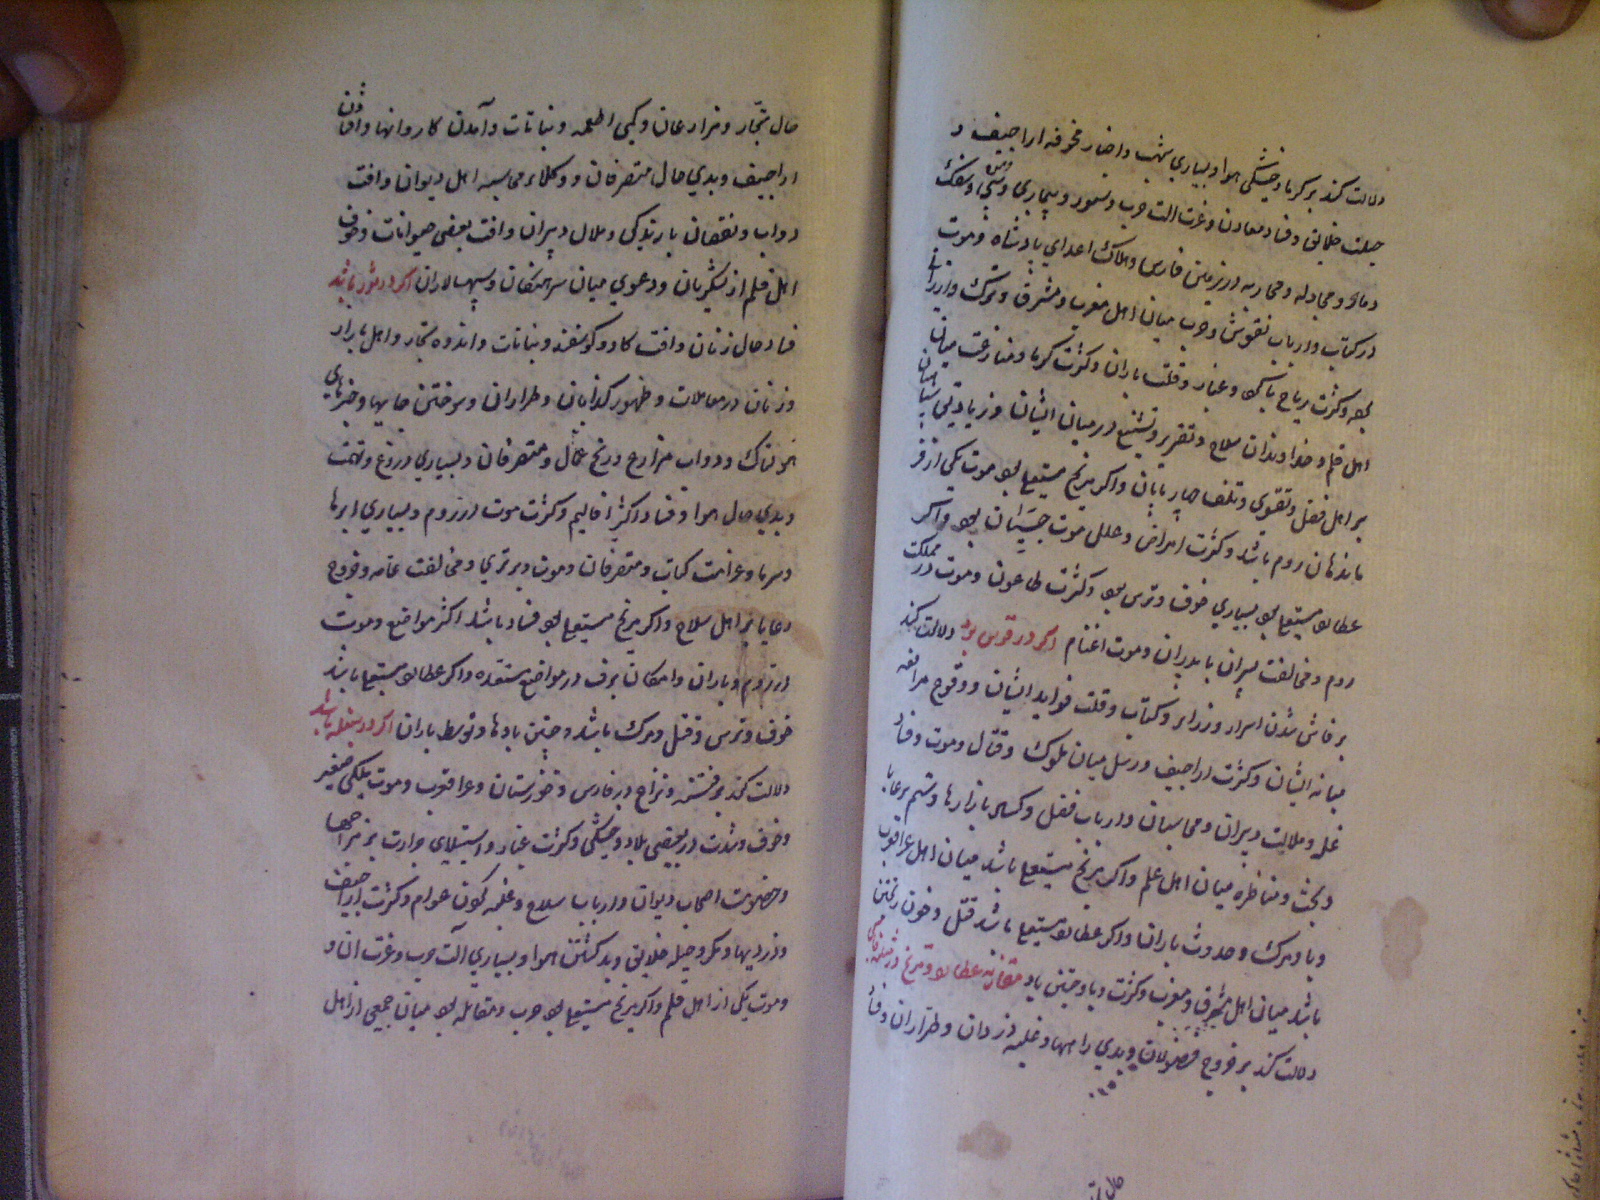 دلالت کند بر کرما و خشکی هوا و بسیاری شهب و اخبار مخوفه اراجیف و
حیلت خلایق و فساد معادن و عزت الت حرب و ستور و بیماری و سفک
دماء و مجادله و محاربه در زمین فارس و هلاک اعدای پادشاه و موت
در کتاب و ارباب نقوش و حرب میان اهل مغرب و مشرق و ترک و
بود و کثرت ریاح با و غبار و قلت باران و کثرت کرما و منازعت میان
اهل قلم و خداوندان سلاح و تقریر و تشنیع در میان ایشان و زیادتی
بر اهل فضل و تقوی و تلف چارپایان و اکر مریخ مستعلی بود موت یکی از
پادشاهان روم باشد و کثرت امراض و علل موت بود و اکر
عطارد مستعلی بود بسیاری خوف و ترس بود و کثرت طاعون و موت در مملکت
روم و مخالفت پسران با پدران و موت اغنام اکر در قوس بود دلالت کند
بر فاش شدن اسرار وزراء و کتاب و قلت فواید ایشان و وقوع مرافعه
میانه ایشان و کثرت اراجیف و رسل میان ملوک و قتال و موت و فساد
غله و ملالت دبیران و محاسبان و ارباب فضل و کساد بازارها و ستم بر رعایا
و بحث و مناظره میان اهل علم و اکر مریخ مستعلی باشد میان اهل عراق حرب
و باد و مرک و حدوث باران و اکر عطارد مستعلی باشد قتل و خون ریختن
باشد میان اهل مشرق و مغرب و کثرت وبا و جستن باد مقارنه عطارد و مریخ در مثلثه
دلالت کند بر خروج و بدی راهها و غلبه دزدان و طراران و فساد
حال تجار و مزارعان و کمی اطعمه و نباتات و آمدن کاروانها و افتادن
اراجیف و بدی حال متصرفان و وکلاء و محاسبه اهل دیوان و افت
دواب و نقصان بارندکی و ملال دبیران و افت بعضی حیوانات و خوف
اهل قلم از لشکریان و دعوی میان سرهنکان و سپهسالاران اکر در ثور باشد
فساد حال زنان و افت کاو و کوسفند و نباتات و اندوه تجار و اهل بازار
و زنان در معاملات و ظهور کذابان و طراران و سوختن جایها و خبرهای
هولناک و دواب مزارع و رنج عمال و متصرفان و بسیاری دروغ و تهمت
و بدی حال هوا و فساد اکثر اقالیم و کثرت موت در روم و بسیاری ابرها
و سرما و غرامت کتاب و متصرفان و موت و مخالفت عامه و خروج
رعایا بر اهل سلاح و اکر مریخ مستعلی بود فساد باشد اکثر مواضع و موت
در روم و باران و امکان برف در مواضع و اکر عطارد مستعلی باشد
خوف و ترس و قتل و مرک باشد و جستن بادها و توسط باران اکر در سنبله باشد
دلالت کند بر فتنه و نزاع در فارس و خوزستان و عراق عرب و موت ملکی صغیر
و خوف و شدت در بعضی بلاد و خشکی و کثرت غبار و استیلای حرارت بر مزاجها
و خصومت اصحاب دیوان و ارباب سلاح و غلبه کردن عوام و کثرت اراجیف
و دزدیها و مکر و حیله خلایق و بد کشتن هوا و بسیاری آلت حرب و عزت ان و
و موت یکی از اهل قلم و اکر مریخ مستعلی بود حرب و مقابله بود میان جمعی از اهل